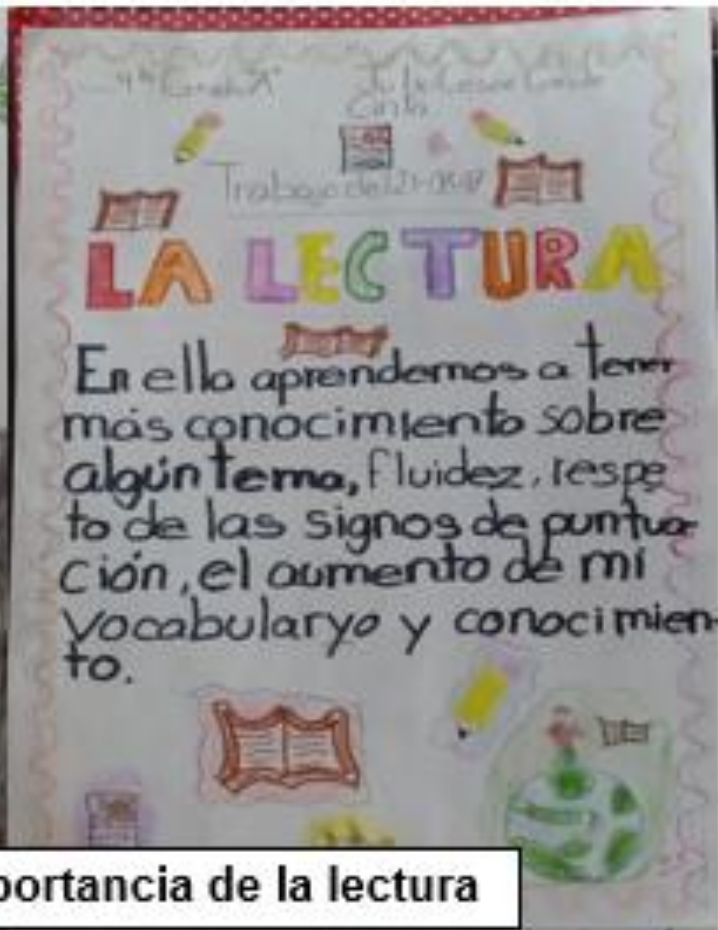 4to Grado "A"
Trabajo del 21-
LA LECTURA
En ella aprendemos a tener
más conocimiento sobre
algún tema, fluidez, respe
to de las signos de puntua
ción, el aumento de mi
vocabularyo y conocimien-
to.
portancia de la lectura